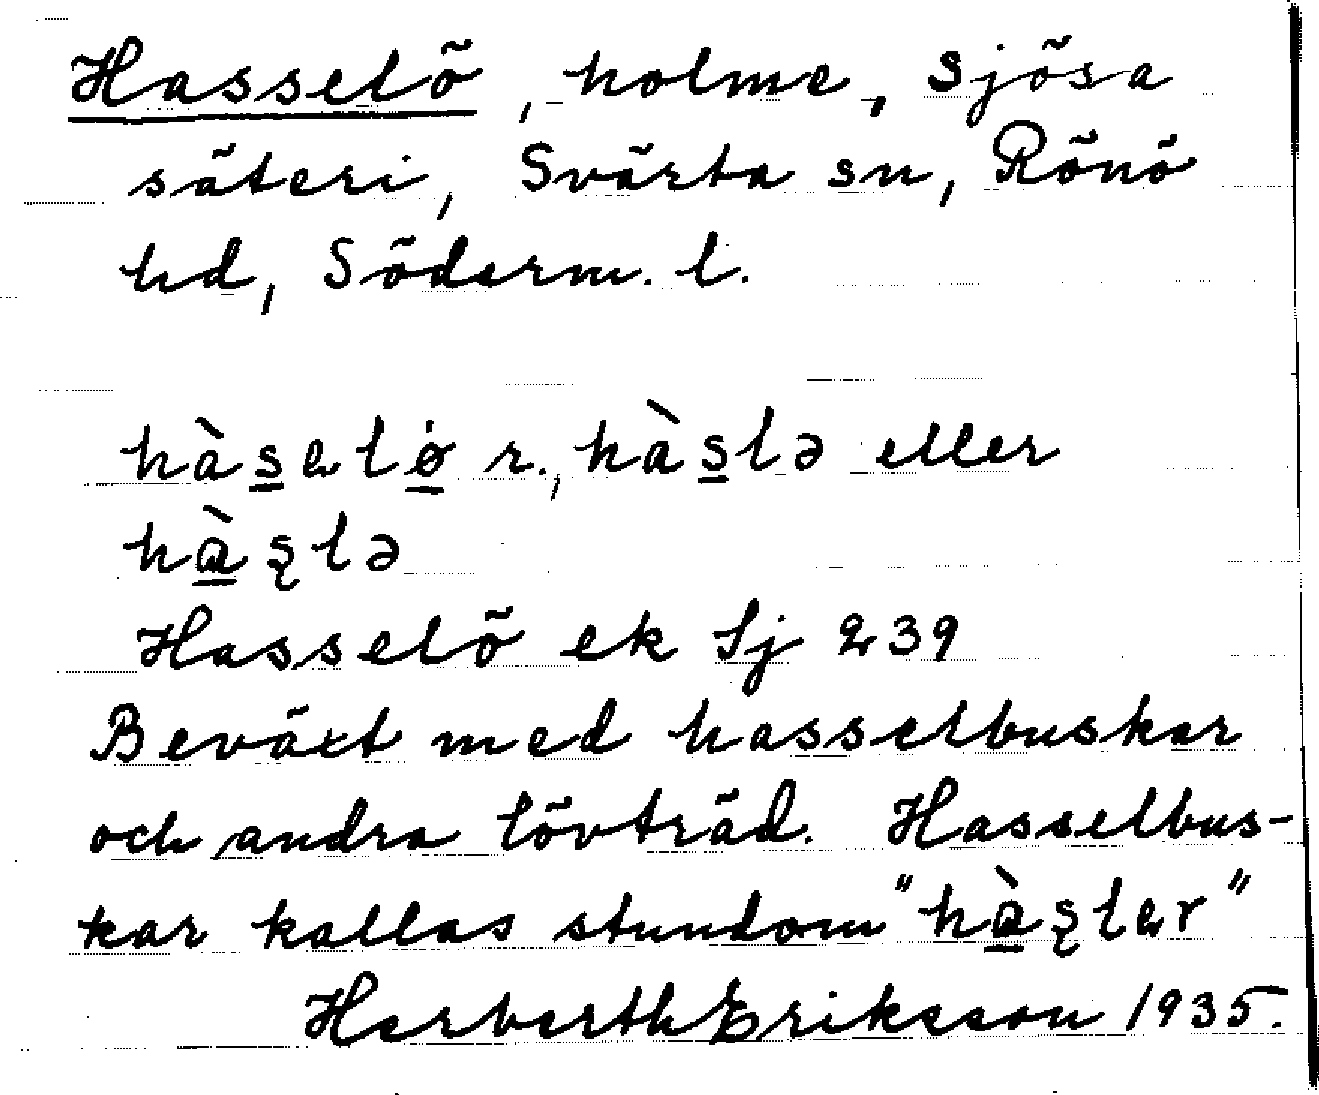 Hasselö, holme, Sjösa
säteri, Svärta sn, Rönö
hd, Söderm. l.
hàselø r., hàslə eller
hàs̨lə
Hasselö ek Sj 239
Beväxt med hasselbuskar
och andra lövträd. Hasselbus-
kar kallas stundom "hàs̨lar"
Herberth Eriksson 1935.